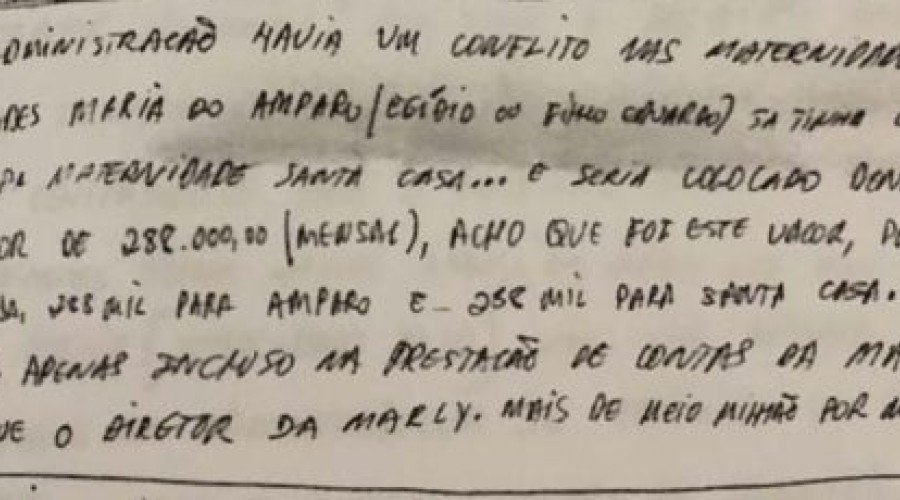 DMINISTRAÇÃO HAVIA UM CONFLITO NAS MATERNIDAD
DES MARIA DO AMPARO (EGÍDIO OU FÚRIO EDUARDO) JA TINHA
DA MATERNIDADE SANTA CASA... E SERIA COLOCADO DEN
OR DE 288.000,00 (MENSAL), ACHO QUE FOI ESTE VALOR, P
288 MIL PARA AMPARO E 288 MIL PARA SANTA CASA.
APENAS INCLUSO NA PRESTAÇÃO DE CONTAS DA MA
UE O DIRETOR DA MARLY. MAIS DE MEIO MILHÃO POR M